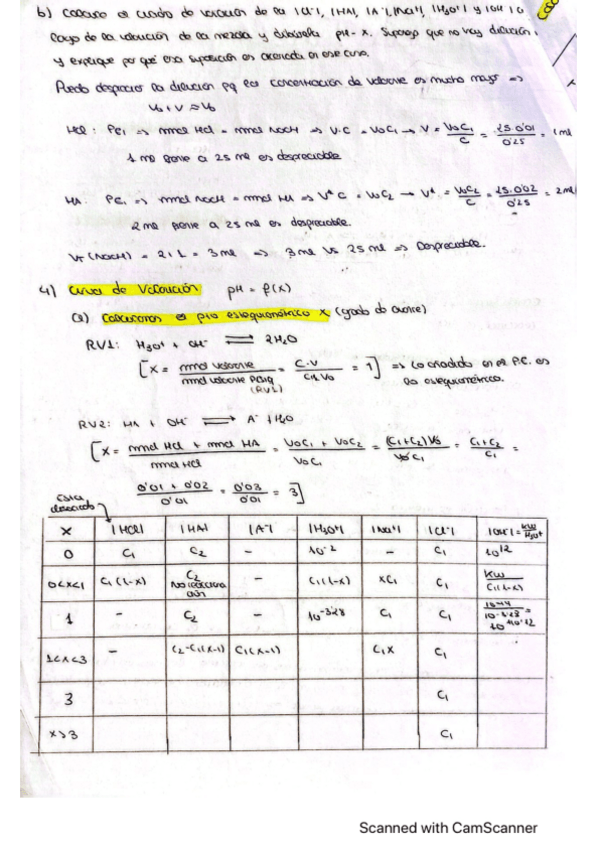 b) Calcule el cuadro de variación de la |Cl⁻|, |HA|, |A⁻|, |Na⁺|, |H₃O⁺| y |OH⁻| a
largo de la valoración de la mezcla y dibújela pH - x. Suponga que no hay dilución,
y explique por qué esa suposición es acertada en este caso.
Puedo despreciar la dilución pq la concentración de valorante es mucho mayor ⇒
V₀ + V ≈ V₀
HCl : PE₁ ⇒ mmol HCl = mmol NaOH ⇒ V·C = V₀C₁ → V = V₀C₁/C = 25·0'01/0'25 = 1 ml
1 ml frente a 25 ml es despreciable
HA: PE₁ ⇒ mmol NaOH = mmol HA ⇒ V*·C = V₀C₂ → V* = V₀C₂/C = 25·0'02/0'25 = 2 ml
2 ml frente a 25 ml es despreciable.
VT (NaOH) = 2+1 = 3 ml ⇒ 3 ml vs 25 ml ⇒ Despreciable.
4) Curva de Valoración pH = f(x)
(a) Calculamos el pto estequiométrico x (grado de avance)
RV1: H₃O⁺ + OH⁻ ⇌ 2H₂O
[x = mmol valorante / mmol valorante PEQ (RV1) = C·V / C₁V₀ = 1] ⇒ lo añadido en el P.E. es
lo estequiométrico.
RV2: HA + OH⁻ ⇌ A⁻ + H₂O
[x = mmol HCl + mmol HA / mmol HCl = V₀C₁ + V₀C₂ / V₀C₁ = (C₁+C₂)V₀ / V₀C₁ = C₁+C₂ / C₁ =
0'01 + 0'02 / 0'01 = 0'03 / 0'01 = 3]
x |HCl| |HA| |A⁻| |H₃O⁺| |Na⁺| |Cl⁻| |OH⁻| = Kw/H₃O⁺
0 C₁ C₂ - 10⁻² - C₁ 10¹²
0<x<1 C₁(1-x) C₂ No reacciona aún - C₁(1-x) xC₁ C₁ Kw / C₁(1-x)
1 - C₂ - 10⁻³'²⁸ C₁ C₁
1<x<3 - C₂-C₁(x-1) C₁(x-1) C₁x C₁
3 C₁
x>3 C₁
Scanned with CamScanner